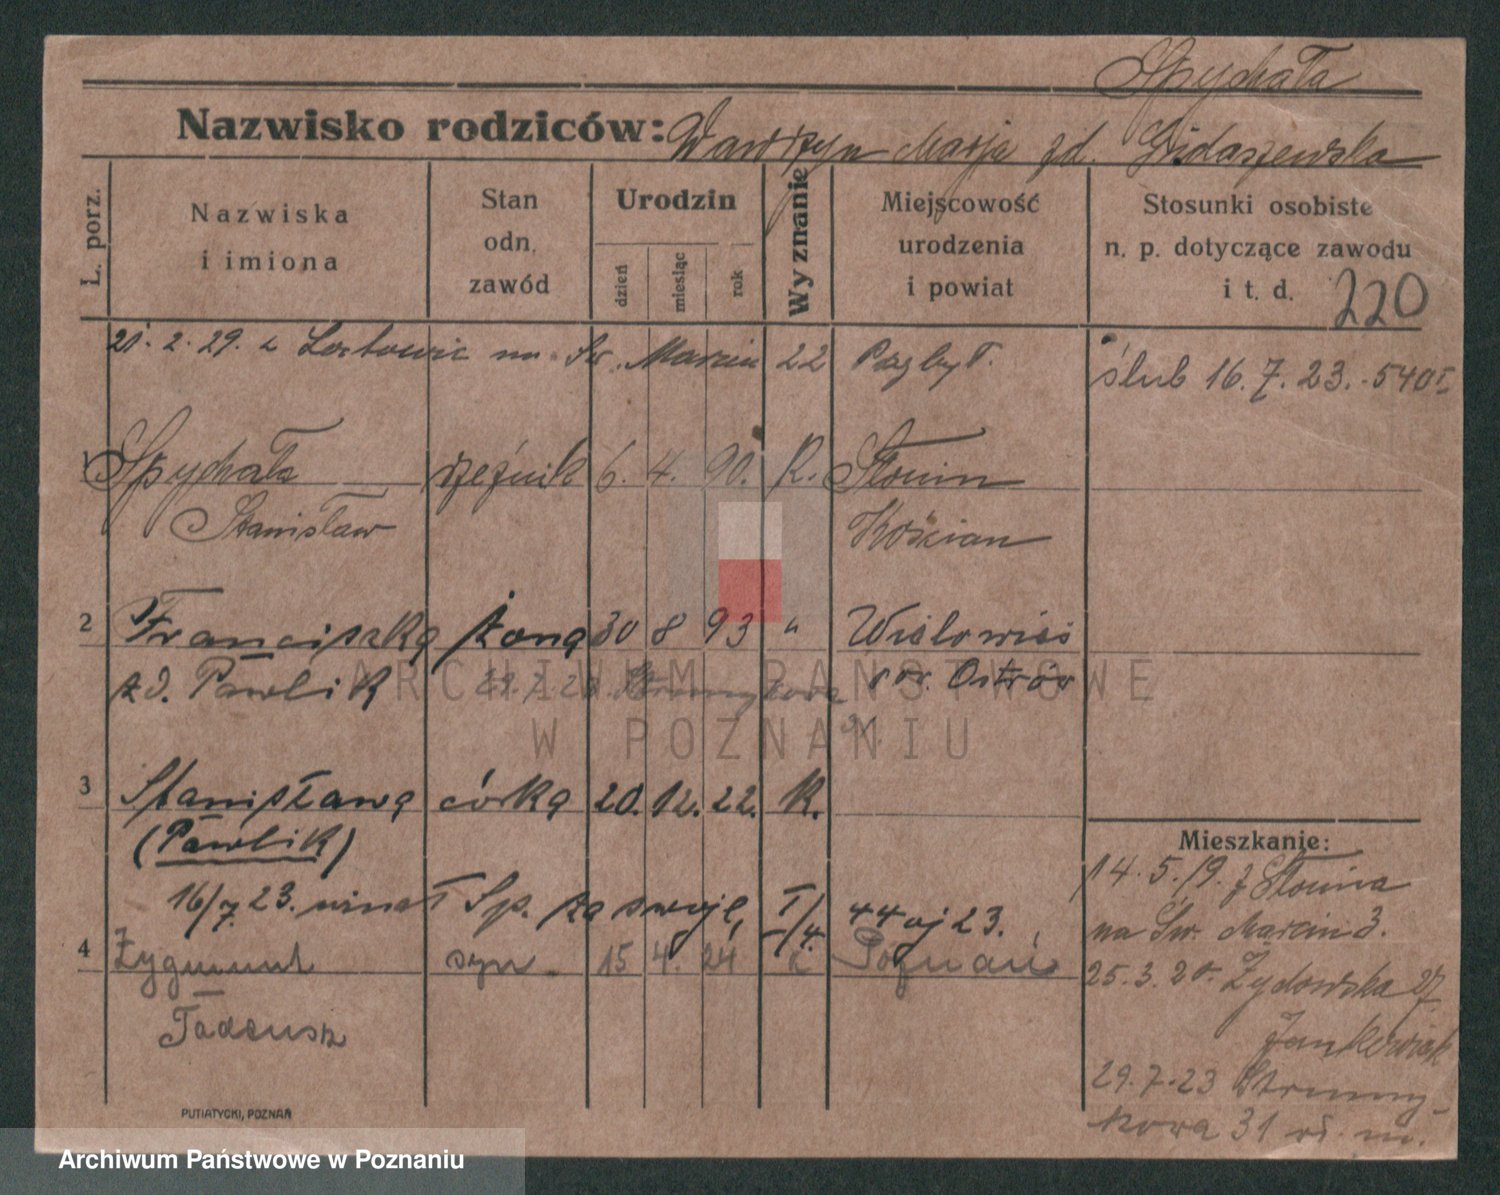 Spychała
Nazwisko rodziców: Wawrzyn Marja zd. Gidaszewska
L. porz.
Nazwiska i imiona
Stan odn. zawód
Urodzin
dzień
miesiąc
rok
Wyznanie
Miejscowość urodzenia i powiat
Stosunki osobiste n. p. dotyczące zawodu i t. d.
220
21. 2. 29. z na Sw. Marcin 22 Pozbył.
ślub 16. 7. 23. - 540
1 Spychała rzeźnik 6. 4. 90. R. Słonin
Stanisław Kościan
2 Franciszka żona 30 8 93 "
zd. Pawlik pow. Ostrów
3 Stanisława córka 20. 12. 22. K.
(Pawlik)
16/7 23. uznał Sp. za swoje,
4 Zygmunt syn 15 4. 24 Poznań
Tadeusz
Mieszkanie:
14. 5. 19. z Słonina
na Św. Marcin 3.
25. 3. 20. Żydowska 27
Jankowiak
29. 7. 23 Strumy-
kowa 31 wł. m.
PUTIATYCKI, POZNAŃ
ARCHIWUM PAŃSTWOWE
W POZNANIU
Archiwum Państwowe w Poznaniu